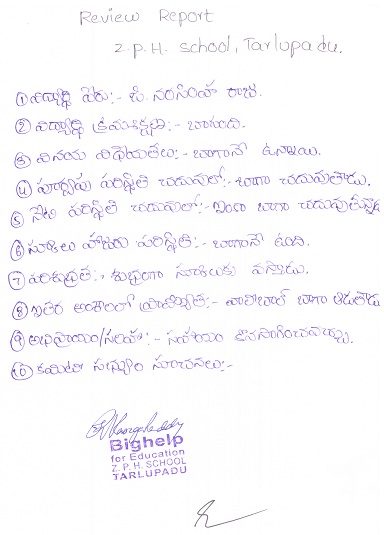 Review Report
Z.P.H. school, Tarlupadu.
① విద్యార్థి పేరు:- జి. నరసింహ రాజు.
② విద్యార్థి క్రమశిక్షణ:- బాగుంది.
③ వినయ విధేయతలు:- బాగానే ఉన్నాయి.
④ పూర్వపు పరిస్థితి చదువులో:- బాగా చదువుతాడు.
⑤ నేటి పరిస్థితి చదువులో:- ఇంకా బాగా చదువుతున్నాడు
⑥ స్కూలు హాజరు పరిస్థితి:- బాగానే ఉంది.
⑦ పరిశుభ్రత:- శుభ్రంగా స్కూలుకు వస్తాడు.
⑧ ఇతర అంశాలలో ప్రావీణ్యత:- వాలీబాల్ బాగా ఆడుతాడు
⑨ అభిప్రాయం/సలహా:- సహాయం కొనసాగించవచ్చు.
⑩ కమిటీ సభ్యుల సూచనలు:-
Bighelp
for Education
Z. P. H. SCHOOL
TARLUPADU